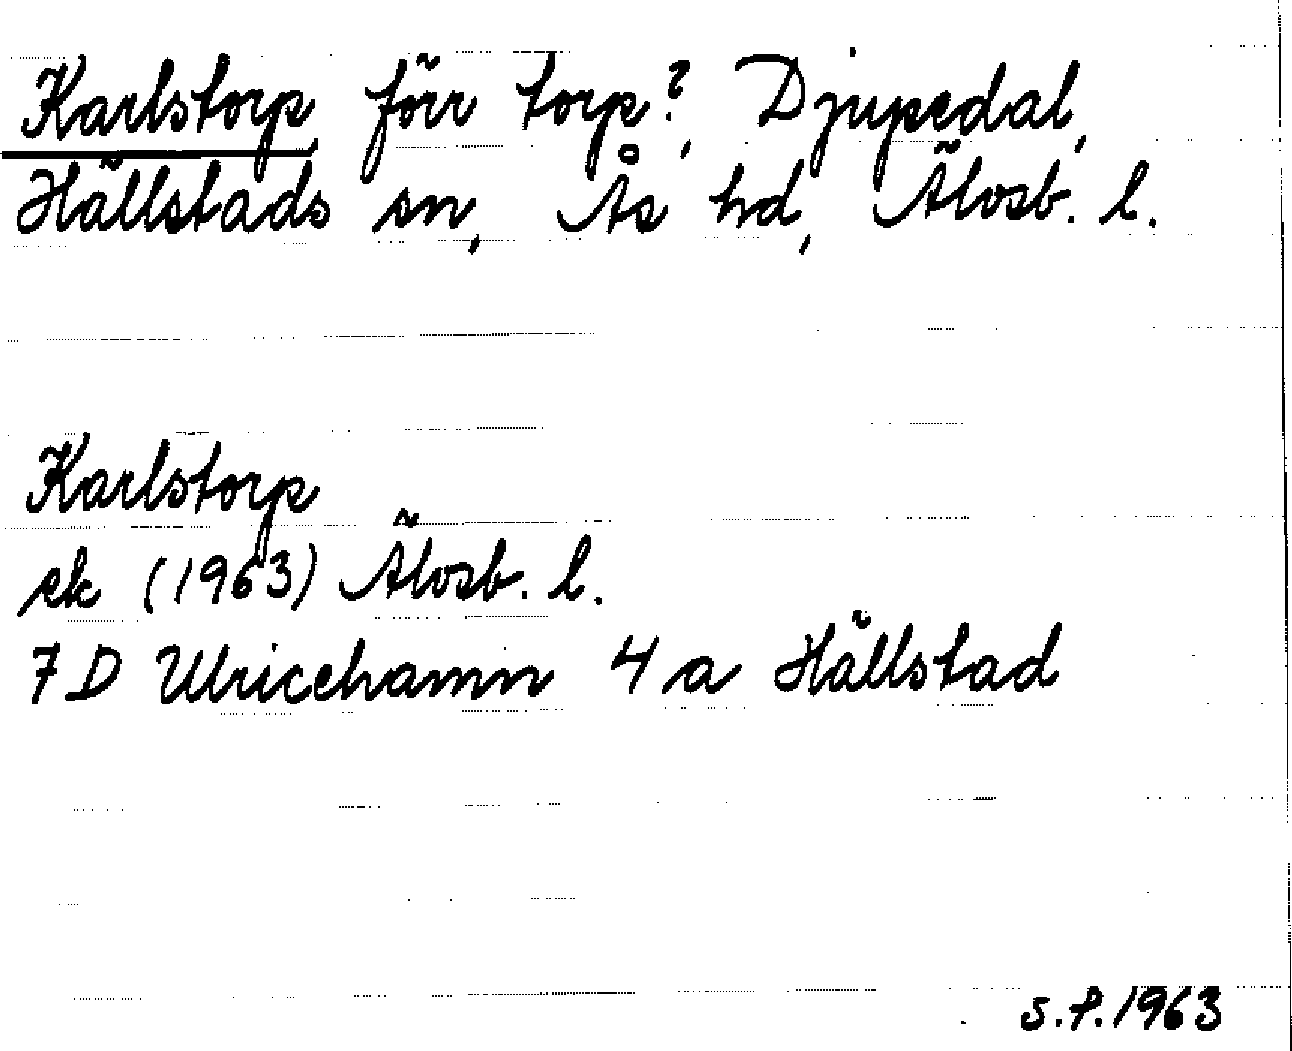 Karlstorp, förr torp?, Djupedal,
Hällstads sn, Ås hd, Älvsb. l.
Karlstorp
ek (1963) Älvsb. l.
7D Ulricehamn 4a Hällstad
S.P. 1963